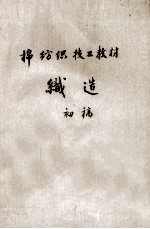 棉纺织技工教材
織造
初稿